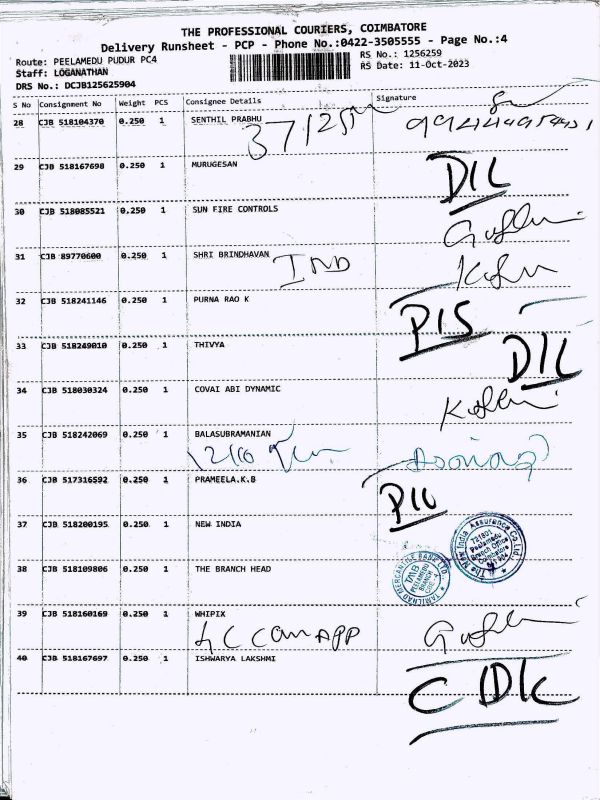 THE PROFESSIONAL COURIERS, COIMBATORE
Delivery Runsheet - PCP - Phone No.:0422-3505555 - Page No.:4
Route: PEELAMEDU PUDUR PC4
RS No.: 1256259
Staff: LOGANATHAN
RS Date: 11-Oct-2023
DRS No.: DCJB125625904
S No Consignment No Weight PCS Consignee Details Signature
28 CJB 518104370 0.250 1 SENTHIL PRABHU
29 CJB 518167698 0.250 1 MURUGESAN
D/L
30 CJB 518085521 0.250 1 SUN FIRE CONTROLS
31 CJB 89770600 0.250 1 SHRI BRINDHAVAN
IND
32 CJB 518241146 0.250 1 PURNA RAO K
P/S
33 CJB 518249010 0.250 1 THIVYA
D/L
34 CJB 518030324 0.250 1 COVAI ABI DYNAMIC
35 CJB 518242069 0.250 1 BALASUBRAMANIAN
36 CJB 517316592 0.250 1 PRAMEELA.K.B
37 CJB 518200195 0.250 1 NEW INDIA
The New India Assurance Co. Ltd.
721801
Peelamedu
Branch Office
Coimbatore
38 CJB 518109806 0.250 1 THE BRANCH HEAD
TAMILNAD MERCANTILE BANK LTD
TMB
PEELAMEDU
BRANCH
39 CJB 518160169 0.250 1 WHIPIX
40 CJB 518167697 0.250 1 ISHWARYA LAKSHMI